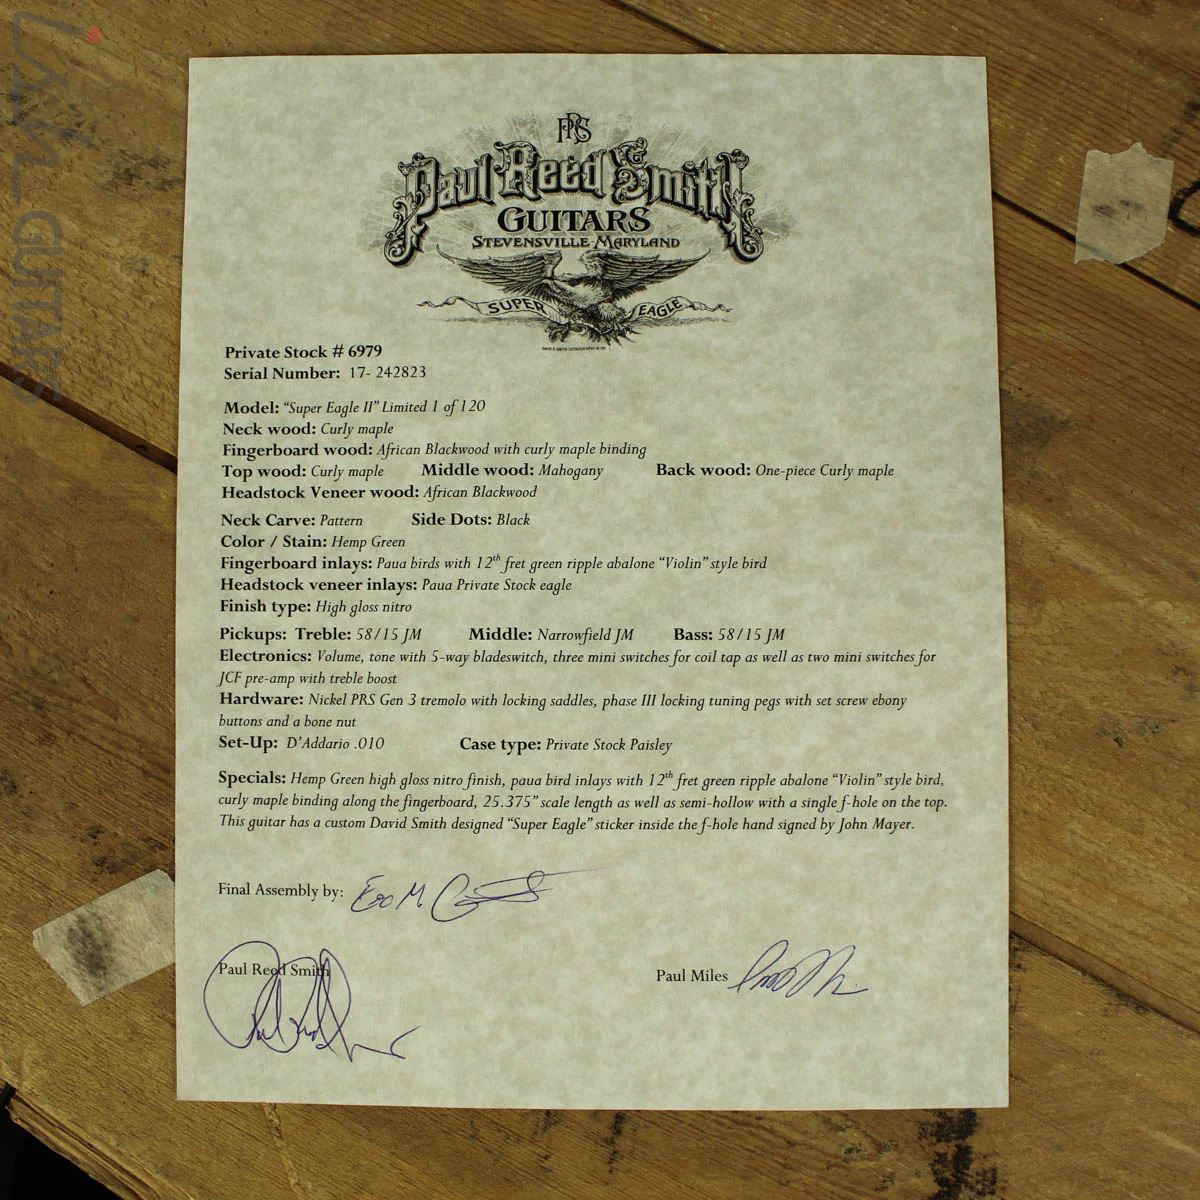 PRS
Paul Reed Smith
GUITARS
STEVENSVILLE-MARYLAND
SUPER EAGLE
Private Stock # 6979
Serial Number: 17- 242823
Model: “Super Eagle II” Limited 1 of 120
Neck wood: Curly maple
Fingerboard wood: African Blackwood with curly maple binding
Top wood: Curly maple Middle wood: Mahogany Back wood: One-piece Curly maple
Headstock Veneer wood: African Blackwood
Neck Carve: Pattern Side Dots: Black
Color / Stain: Hemp Green
Fingerboard inlays: Paua birds with 12th fret green ripple abalone “Violin” style bird
Headstock veneer inlays: Paua Private Stock eagle
Finish type: High gloss nitro
Pickups: Treble: 58/15 JM Middle: Narrowfield JM Bass: 58/15 JM
Electronics: Volume, tone with 5-way bladeswitch, three mini switches for coil tap as well as two mini switches for
JCF pre-amp with treble boost
Hardware: Nickel PRS Gen 3 tremolo with locking saddles, phase III locking tuning pegs with set screw ebony
buttons and a bone nut
Set-Up: D’Addario .010 Case type: Private Stock Paisley
Specials: Hemp Green high gloss nitro finish, paua bird inlays with 12th fret green ripple abalone “Violin” style bird,
curly maple binding along the fingerboard, 25.375” scale length as well as semi-hollow with a single f-hole on the top.
This guitar has a custom David Smith designed “Super Eagle” sticker inside the f-hole hand signed by John Mayer.
Final Assembly by:
Paul Reed Smith
Paul Miles
GUITARS